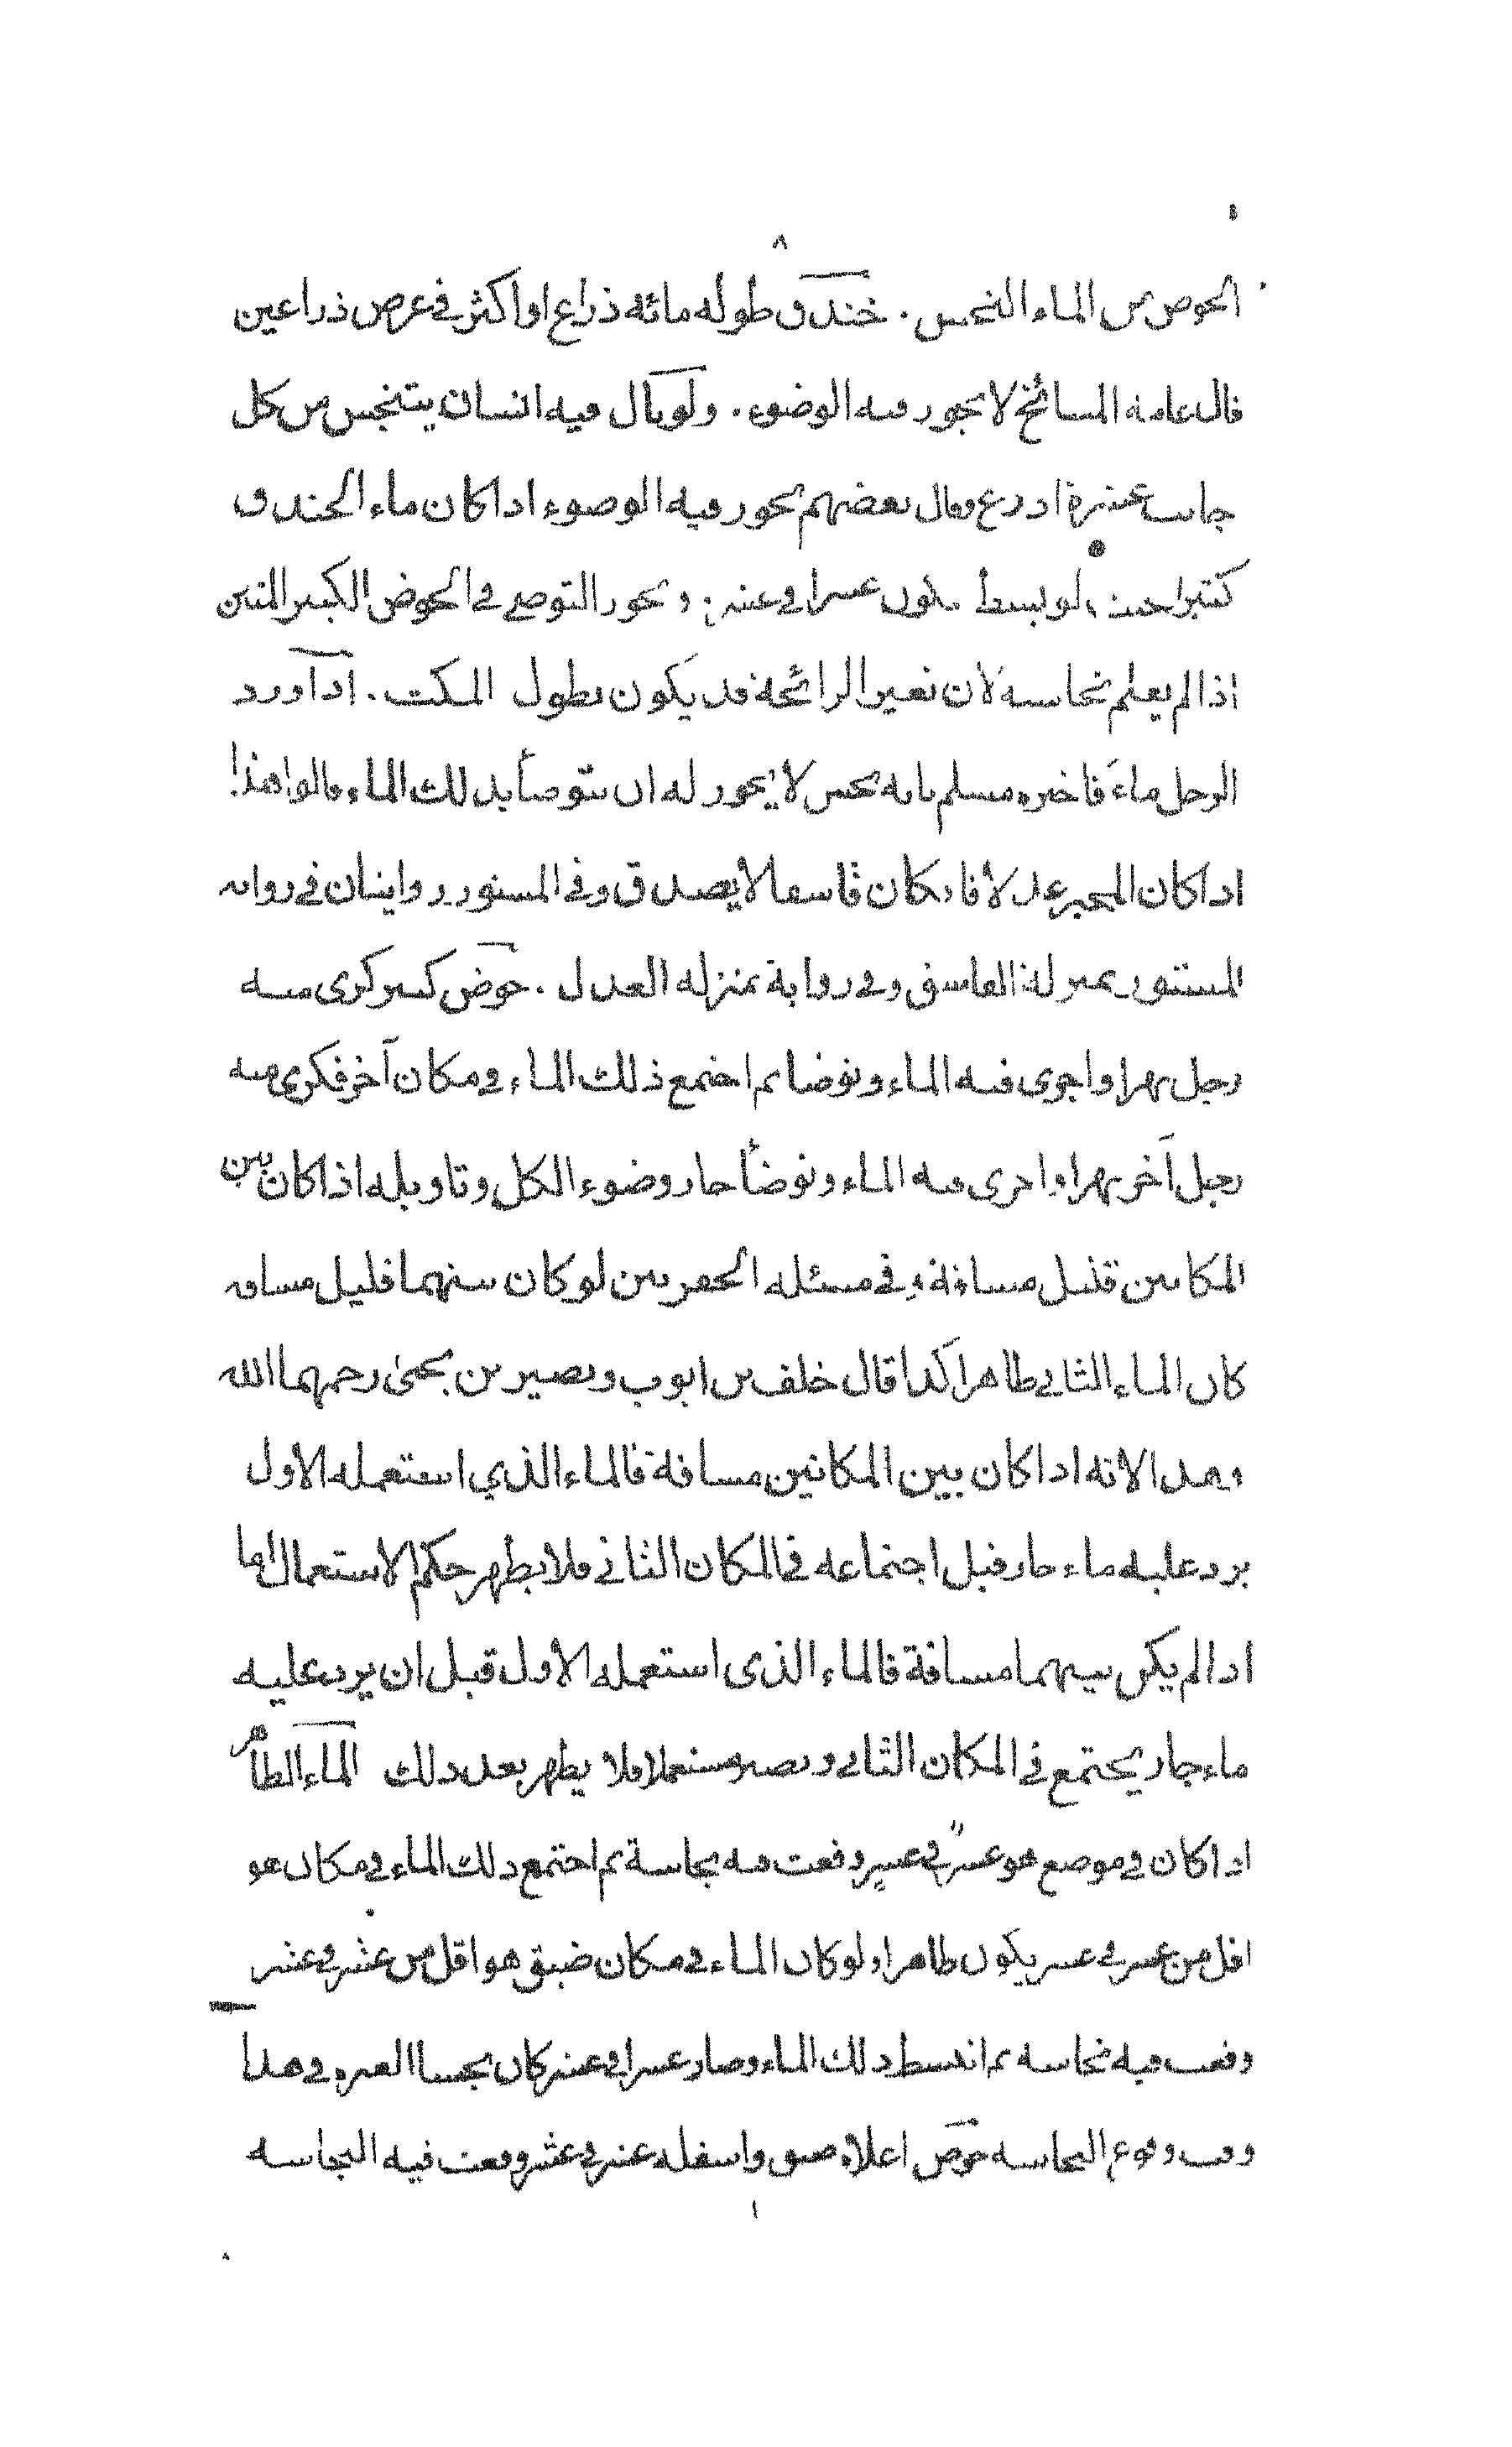 ٨
الحوض من الماء النجس . خندق طوله مائة ذراع او اكثر في عرض ذراعين
قال عامة المشائخ لا يجوز فيه الوضوء . ولو بال فيه انسان يتنجس من كل
جانب عشرة اذرع وقال بعضهم يجوز فيه الوضوء اذا كان ماء الخندق
كثيرا بحيث لو بسط يكون عشرا في عشر . ويجوز التوضي في الحوض الكبير المنتن
اذا لم يعلم نجاسته لان تغير الرائحة قد يكون بطول المكث . اذا ورد
الرجل ماءً فاخبره مسلم بانه نجس لا يجوز له ان يتوضأ بذلك الماء قالوا هذا
اذا كان المخبر عدلا فان كان فاسقا لا يصدق وفي المستور روايتان في رواية
المستور بمنزلة الفاسق وفي رواية بمنزلة العدل . حوض كبير كرى منه
رجل نهرا واجرى فيه الماء وتوضأ ثم اجتمع ذلك الماء في مكان آخر فكرى منه
رجل آخر نهرا واجرى فيه الماء وتوضأ جاز وضوء الكل وتاويله اذا كان بين
المكانين قليل مسافة وفي مسئلة الحفرتين لو كان بينهما قليل مسافة
كان الماء الثاني طاهرا كذا قال خلف بن ايوب ونصير بن يحيى رحمهما الله
وهذا لانه اذا كان بين المكانين مسافة فالماء الذي استعمله الاول
يرد عليه ماء جار قبل اجتماعه في المكان الثاني فلا يظهر حكم الاستعمال اما
اذا لم يكن بينهما مسافة فالماء الذى استعمله الاول قبل ان يرد عليه
ماء جار يجتمع في المكان الثاني ويصير مستعملا فلا يطهر بعد ذلك الماء الطاهر
اذا كان في موضع هو عشر في عشر وقعت فيه نجاسة ثم اجتمع ذلك الماء في مكان هو
اقل من عشر في عشر يكون طاهرا ولو كان الماء في مكان ضيق هو اقل من عشر في عشر
وقعت فيه نجاسة ثم انبسط ذلك الماء وصار عشرا في عشر كان نجسا العبرة في هذا
وقت وقوع النجاسة حوض اعلاه ضيق واسفله عشر في عشر وقعت فيه النجاسة